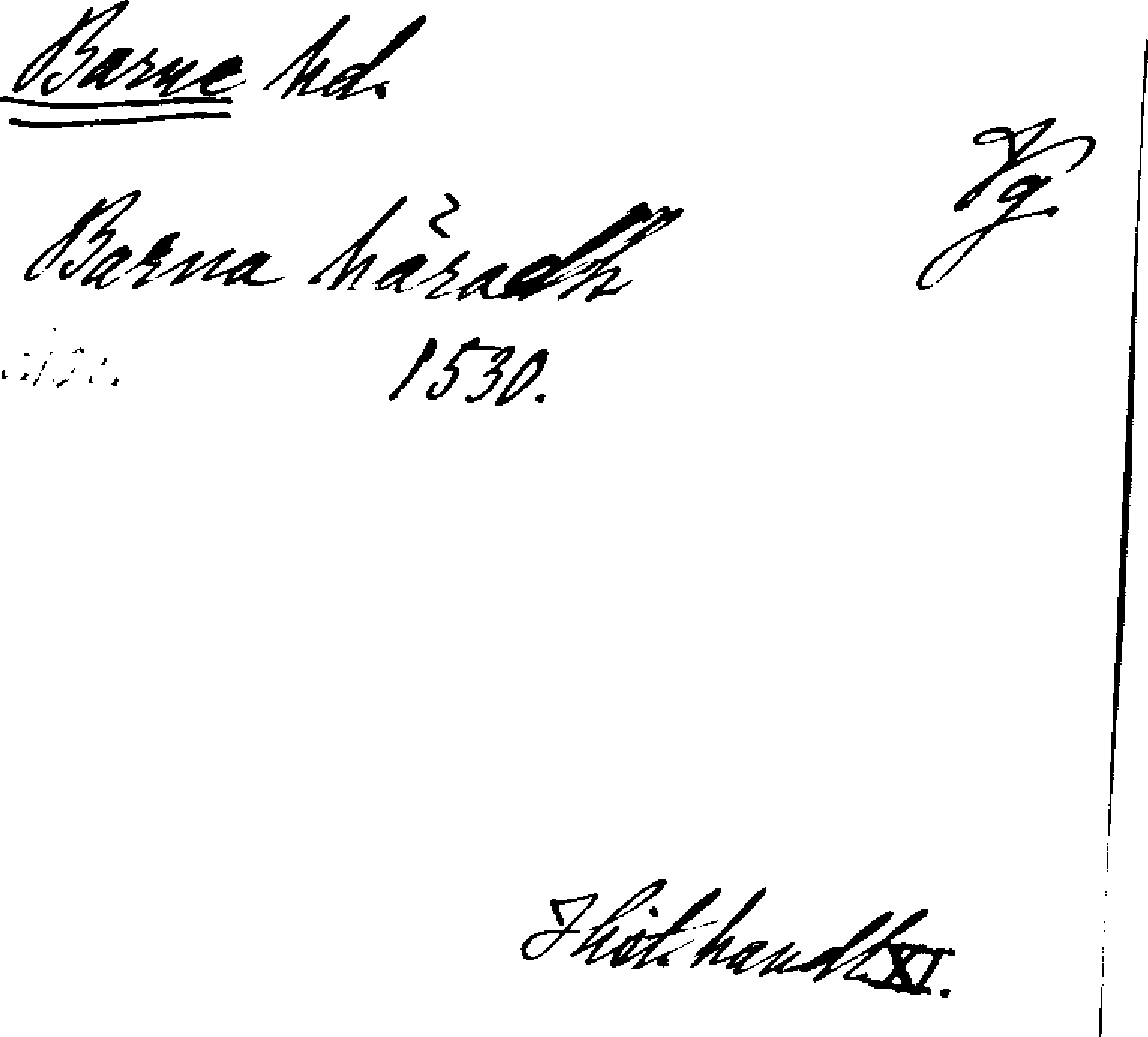 Barne hd.
Vg.
Barna häradh
1530.
Thöt. handl. XI.